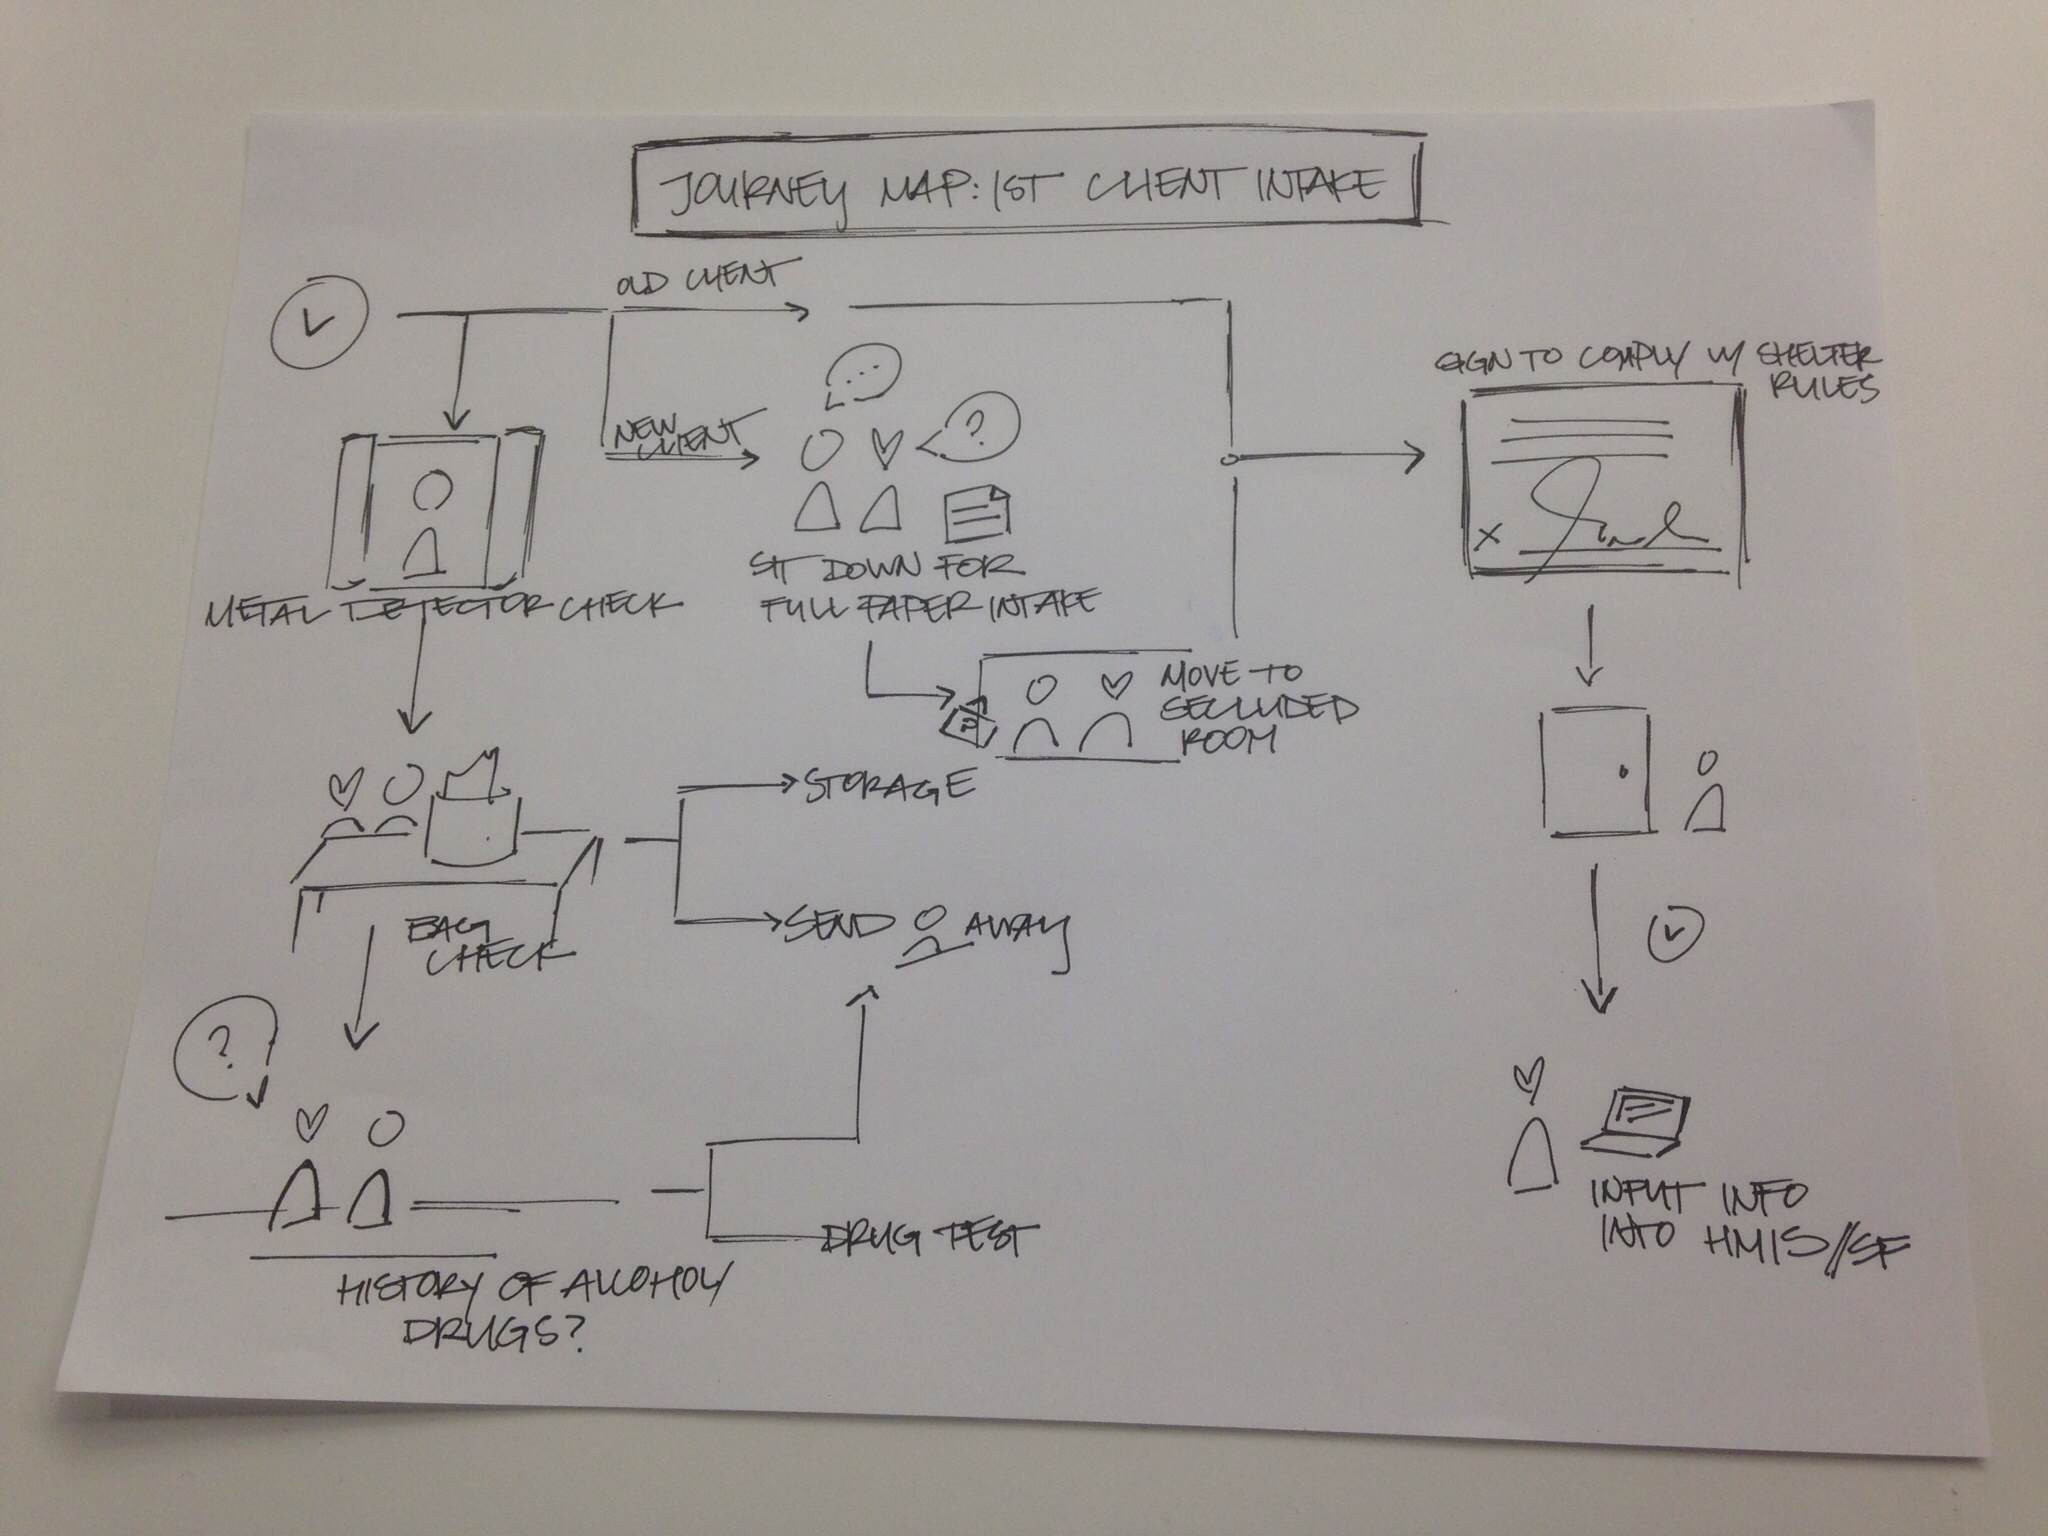 JOURNEY MAP: 1ST CLIENT INTAKE
OLD CLIENT
NEW
CLIENT
...
?
SIT DOWN FOR
FULL PAPER INTAKE
SIGN TO COMPLY W/ SHELTER
RULES
X
METAL DETECTOR CHECK
MOVE TO
SECLUDED
ROOM
P
STORAGE
SEND AWAY
BAG
CHECK
?
DRUG TEST
HISTORY OF ALCOHOL/
DRUGS?
INPUT INFO
INTO HMIS//SF